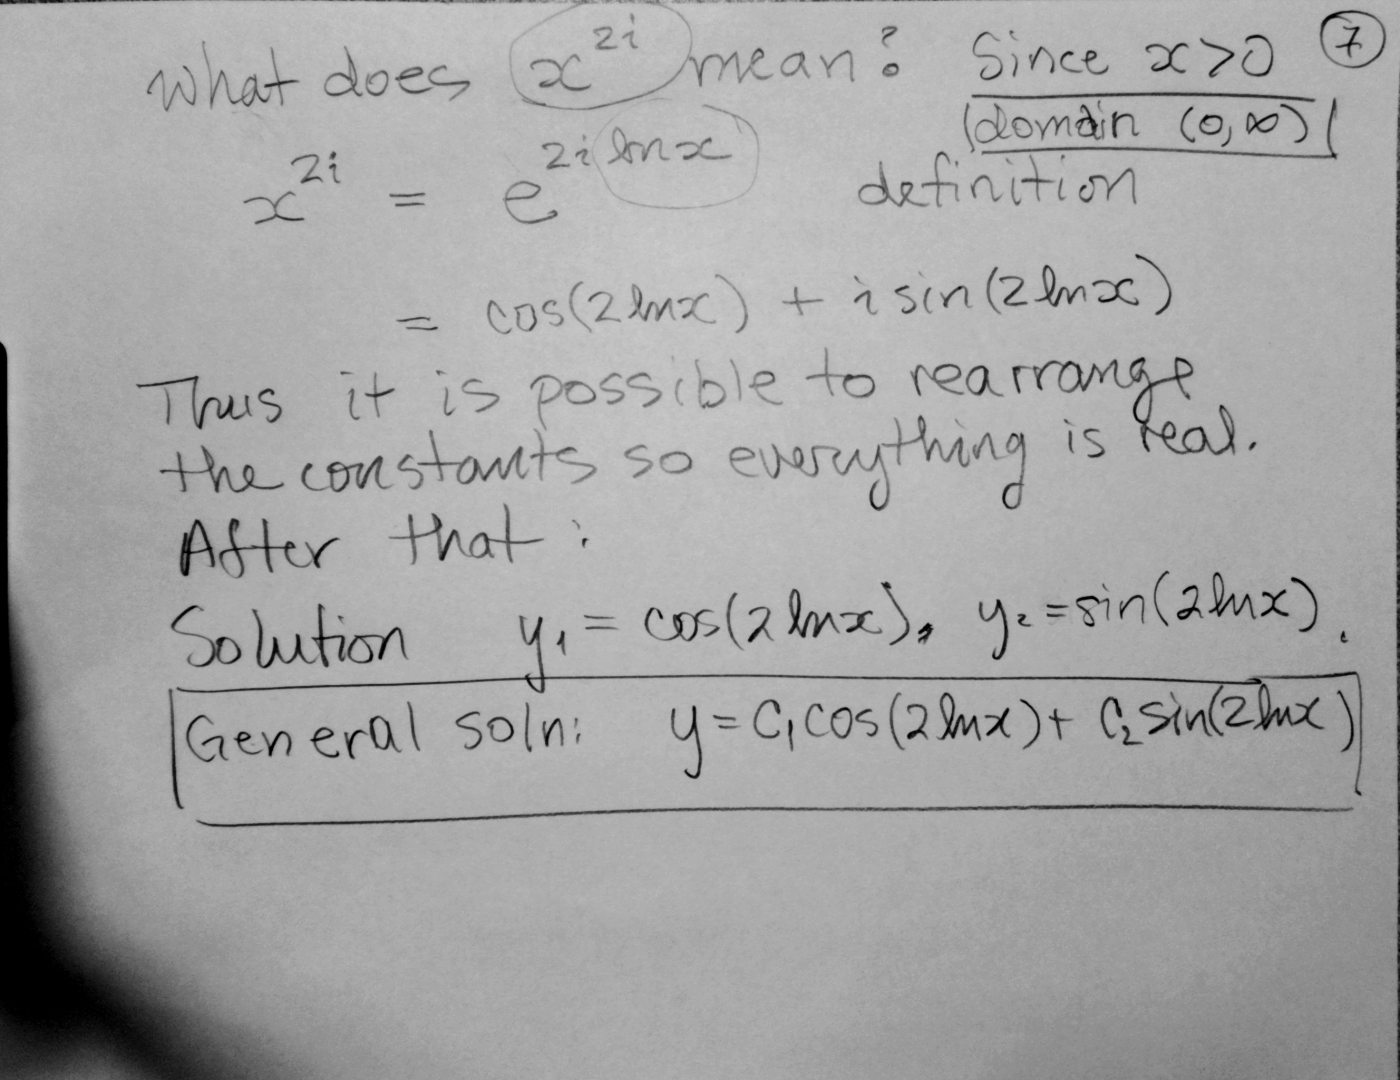 What does x^{2i} mean? Since x>0 ⑦
(domain (0,∞))
x^{2i} = e^{2i ln x} definition
= cos(2lnx) + i sin(2lnx)
Thus it is possible to rearrange
the constants so everything is real.
After that:
Solution y₁ = cos(2lnx), y₂ = sin(2lnx).
General soln: y = C₁cos(2lnx) + C₂sin(2lnx)